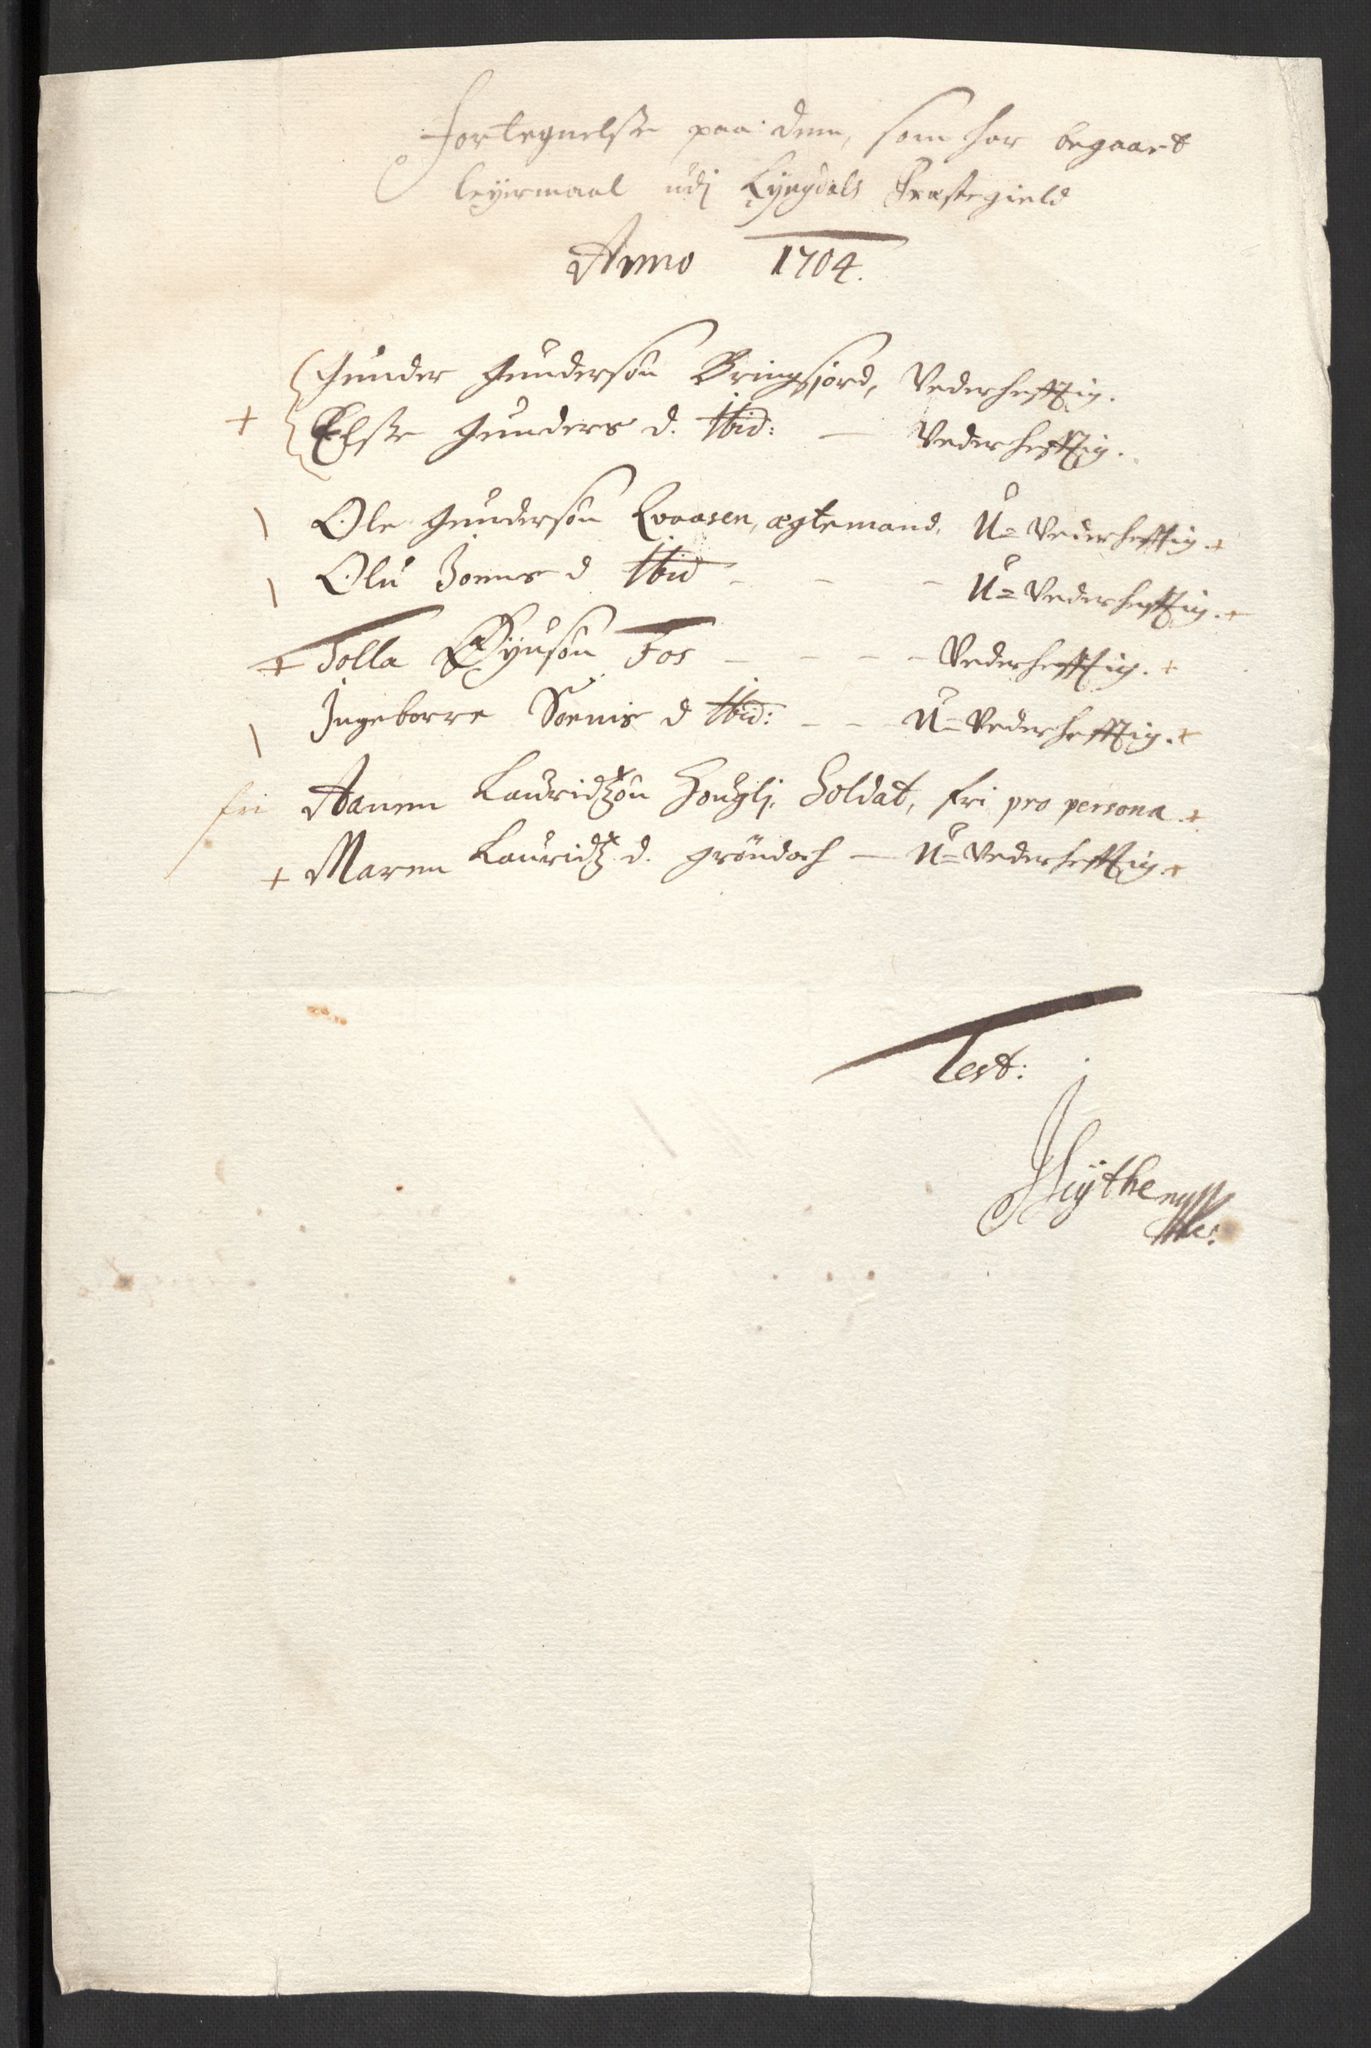 Fortegnelse paa dem, som har begaaet
leyermaal udj Lyngdals Præstegield
Anno 1704.
Gunder Gundersøn Bringsjord, Vederhefftig.
+ Else Gunders d. Ibid: — Vederhefftig.
\ Ole Gundersøn Qvaasen, ægtemand, U= Vederhefftig. +
\ Olu Joens d Ibid - - - U= Vederhefftig. +
+ Tolla Øyusøn Fos - - - - Vederhefftig. +
\ Ingeborre Soens d Ibid: - - - U= Vederhefftig. +
fri Aanen Lauridtzøn Houglj, Soldat, fri pro persona +
+ Maren Lauridtz d. Grøndoch — U= Vederhefftig +
Test: